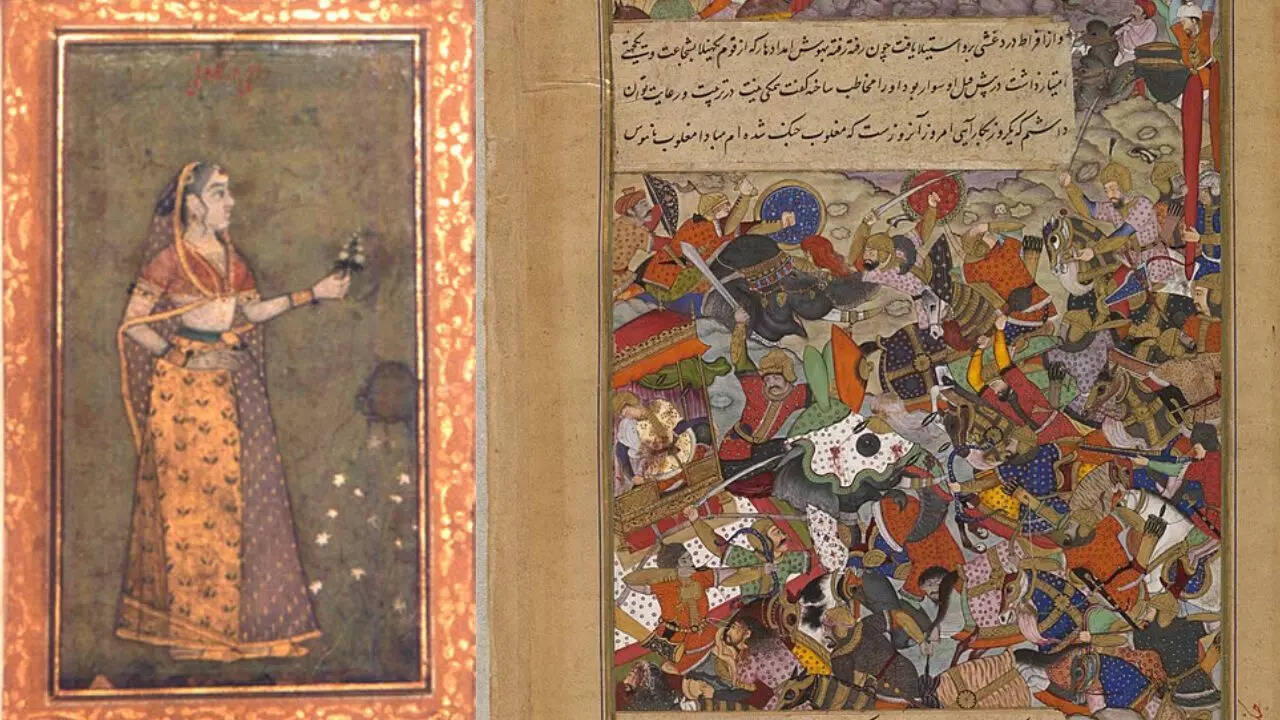 و از افراط درد غشی برو استیلا یافت چون رفته رفته بهوش امد ادهار که از قوم بکهیلا بشجاعت و یکجهتی
امتیاز داشت در پیش فیل او سوار بود او را مخاطب ساخته گفت همگی نیت در تربیت و رعایت تو ان
داشتم که یکروز بکار آیی امروز آنروزست که مغلوب جنک شده ام مبادا مغلوب ناموس